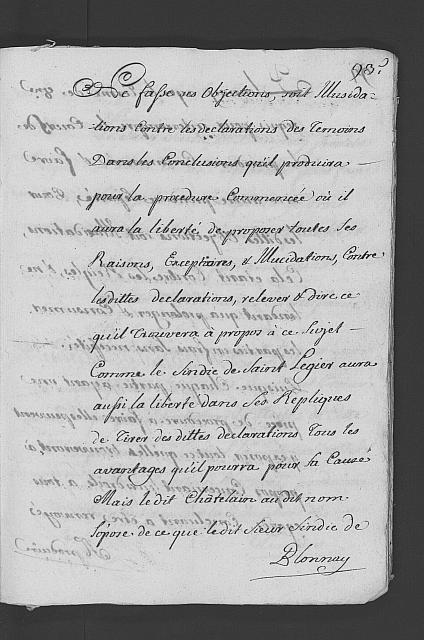 98.
De fasse ses Objections, soit Illusida-
tions contre les declarations des Temoins
Dans les Conclusions qu'il produira
pour la procedure Commencée où il
aura la liberté de proposer toutes ses
Raisons, Exceptoires, & Illucidations, Contre
lesdittes declarations, relever & dire ce
qu'il Trouvera à propos à ce Sujet
Comme le Sindic de Saint Legier aura
aussi la liberté dans Ses Repliques
de Tirer desdittes declarations Tous les
avantages qu'il pourra pour sa Cause
Mais ledit Châtelain au dit nom
s'opose de ce que ledit Sieur Sindic de
Blonnay